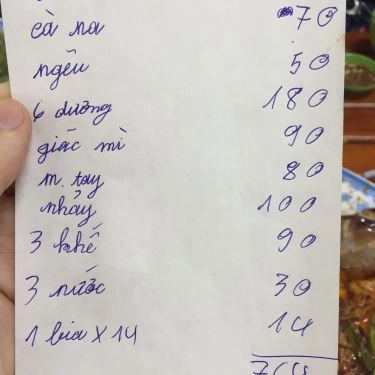 cà na 70
ngêu 50
6 dương 180
giắc mì 90
m. tay 80
nhảy 100
3 khế 90
3 nước 30
1 bia x 14 14